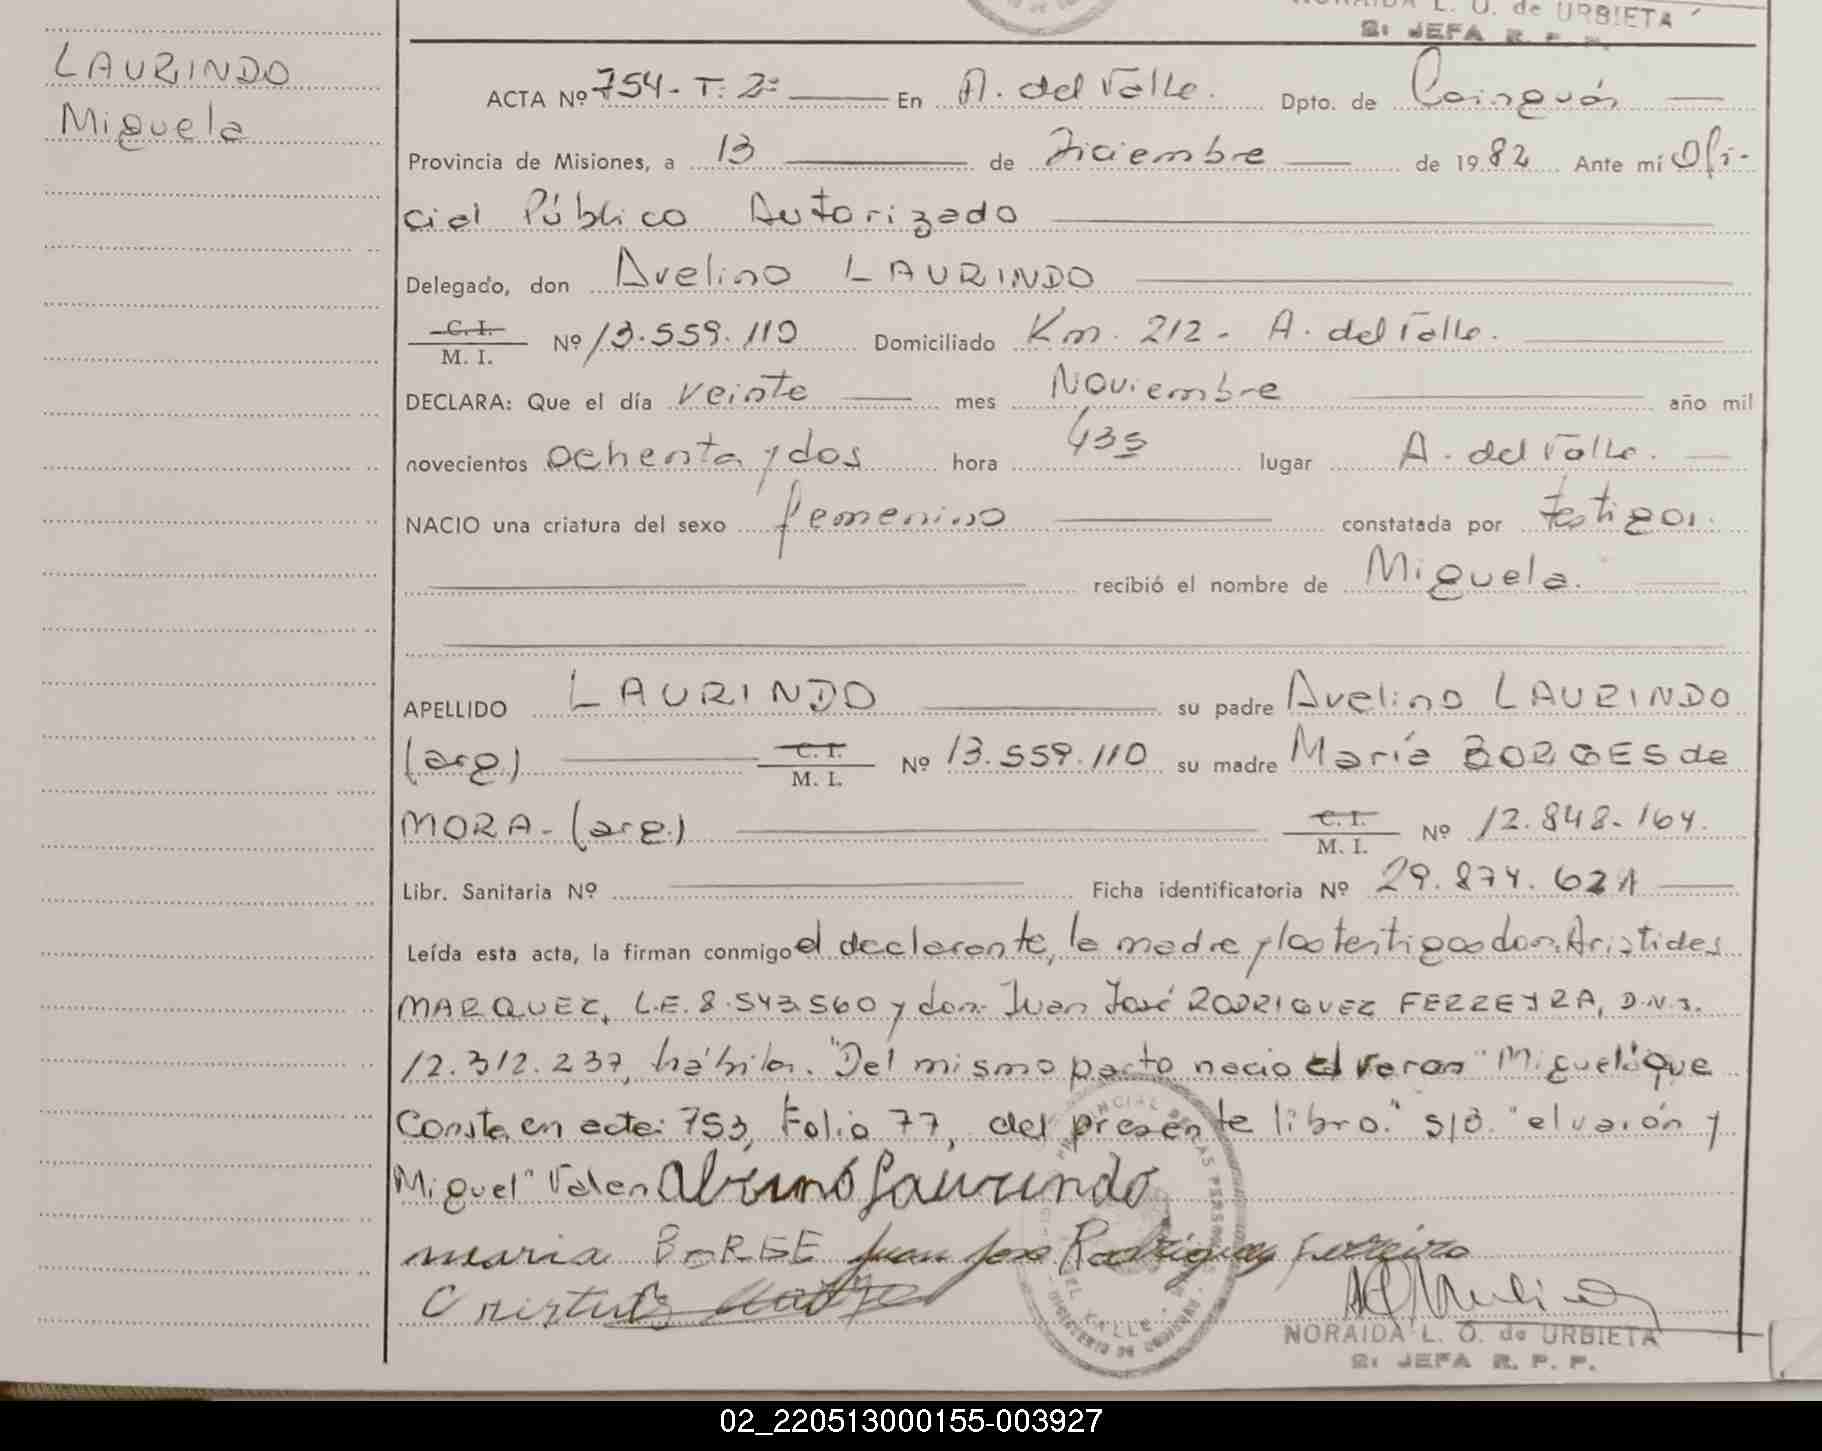 NORAIDA L. O. de URBIETA
2: JEFA R. P. P.
LAURINDO
Miguela
ACTA Nº 754- T: 2º En A. del Valle. Dpto. de Cainguás
Provincia de Misiones, a 13 de Diciembre de 1982 Ante mí Ofi-
cial Público Autorizado
Delegado, don Avelino LAURINDO
C. I. M. I. Nº 13.559.110 Domiciliado Km. 212- A. del Valle.
DECLARA: Que el día veinte mes Noviembre año mil
novecientos ochenta y dos hora 435 lugar A. del Valle.
NACIO una criatura del sexo femenino constatada por testigos.
recibió el nombre de Miguela.
APELLIDO LAURINDO su padre Avelino LAURINDO
(arg) C. I. M. I. Nº 13.559.110 su madre María BORGES de
MORA- (arg.) C. I. M. I. Nº 12.848.164.
Libr. Sanitaria Nº Ficha identificatoria Nº 29.874.621
Leída esta acta, la firman conmigo el declarante, la madre y los testigos don: Aristides
MARQUEZ, L.E. 8.543.560 y don: Juan José RODRIGUEZ FERREYRA, D.N.I.
12.312.237, hábiles. "Del mismo parto nacio el varon "Miguel" que
Consta en acta: 753, Folio 77, del presente libro." S/B. "el varón y
Miguel" Valen Avelino Laurindo
maria BORGE Juan Jose Rodriguez Ferreira
NORAIDA L. O. de URBIETA
2: JEFA R. P. P.
02_220513000155-003927